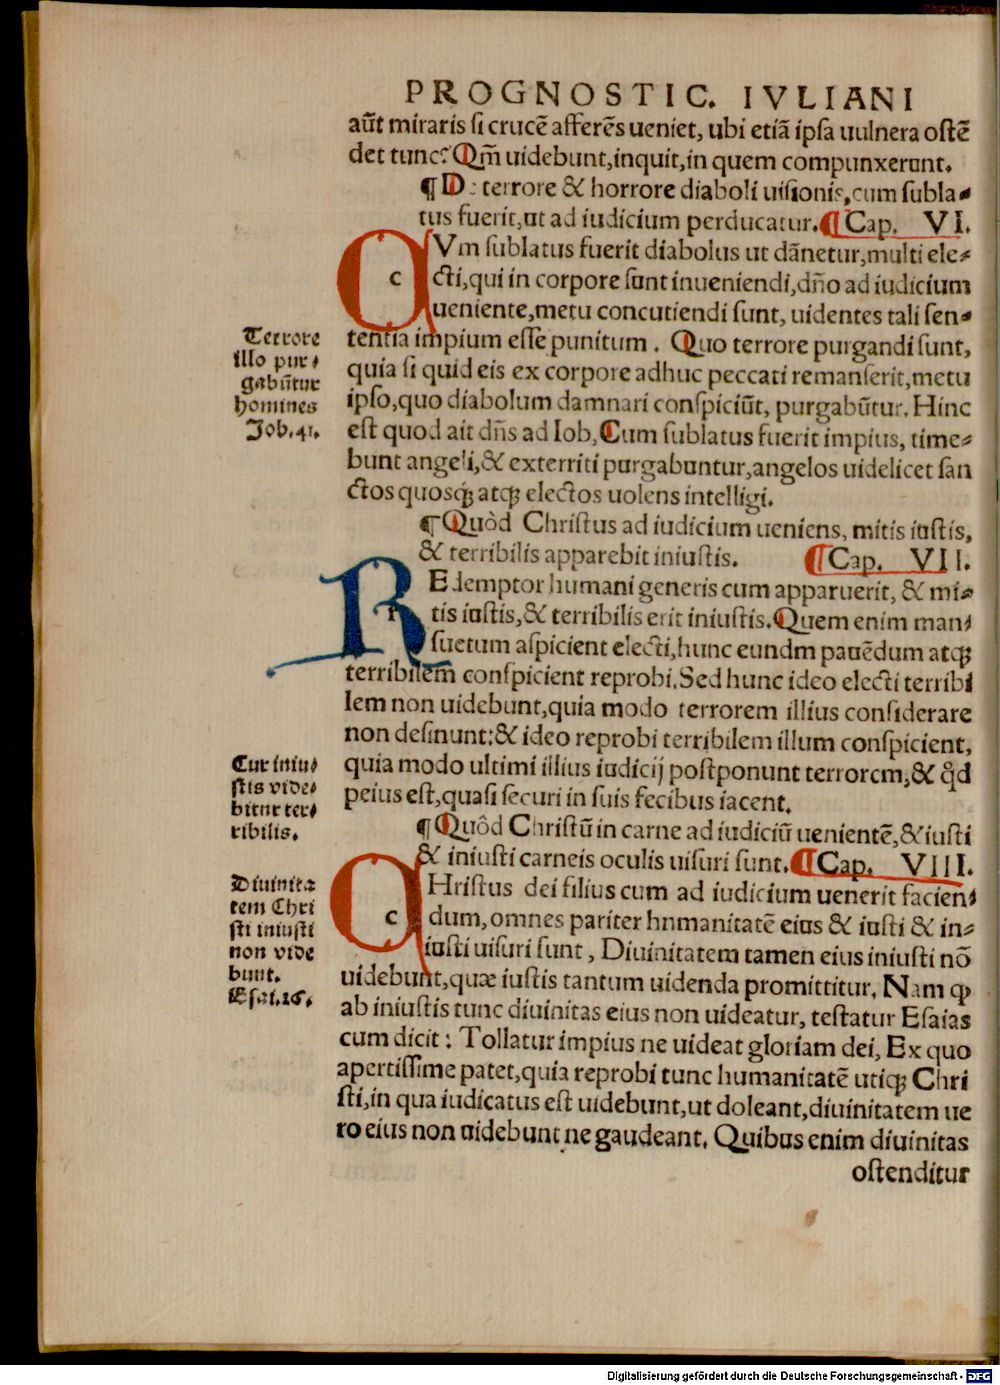 PROGNOSTIC. IVLIANI
aūt miraris si crucē afferēs ueniet, ubi etiā ipsa uulnera ostē
det tunc? Qm̄ uidebunt, inquit, in quem compunxerunt.
¶ De terrore & horrore diaboli uisionis, cum subla-
tus fuerit, ut ad iudicium perducatur. ¶ Cap. VI.
CVm sublatus fuerit diabolus ut dānetur, multi ele-
cti, qui in corpore sunt inueniendi, dño ad iudicium
ueniente, metu concutiendi sunt, uidentes tali sen-
tentia impium esse punitum. Quo terrore purgandi sunt,
quia si quid eis ex corpore adhuc peccati remanserit, metu
ipso, quo diabolum damnari conspiciūt, purgabūtur. Hinc
est quod ait dñs ad Iob, Cum sublatus fuerit impius, time-
bunt angeli, & exterriti purgabuntur, angelos uidelicet san
ctos quosqȝ atqȝ electos uolens intelligi.
Terrore
illo pur-
gabūtur
homines
Job. 41.
¶ Quòd Christus ad iudicium ueniens, mitis iustis,
& terribilis apparebit iniustis. ¶ Cap. VII.
REdemptor humani generis cum apparuerit, & mi-
tis iustis, & terribilis erit iniustis. Quem enim man-
suetum aspicient electi, hunc eundm pauēdum atqȝ
terribilem conspicient reprobi. Sed hunc ideo electi terribi
lem non uidebunt, quia modo terrorem illius considerare
non desinunt: & ideo reprobi terribilem illum conspicient,
quia modo ultimi illius iudicij postponunt terrorem, & qd̄
peius est, quasi securi in suis fecibus iacent.
Cur iniu-
stis vide-
bitur ter-
ribilis.
¶ Quôd Christū in carne ad iudiciū uenientē, & iusti
& iniusti carneis oculis uisuri sunt. ¶ Cap. VIII.
CHristus dei filius cum ad iudicium uenerit facien-
dum, omnes pariter hnmanitatē eius & iusti & in-
iusti uisuri sunt, Diuinitatem tamen eius iniusti nō
uidebunt, quæ iustis tantum uidenda promittitur. Nam ꝙ
ab iniustis tunc diuinitas eius non uideatur, testatur Esaias
cum dicit: Tollatur impius ne uideat gloriam dei, Ex quo
apertissime patet, quia reprobi tunc humanitatē utiqȝ Chri
sti, in qua iudicatus est uidebunt, ut doleant, diuinitatem ue
ro eius non uidebunt ne gaudeant. Quibus enim diuinitas
ostenditur
Diuinita
tem Chri
sti iniusti
non vide
bunt.
Esai. 26.
Digitalisierung gefördert durch die Deutsche Forschungsgemeinschaft - DFG